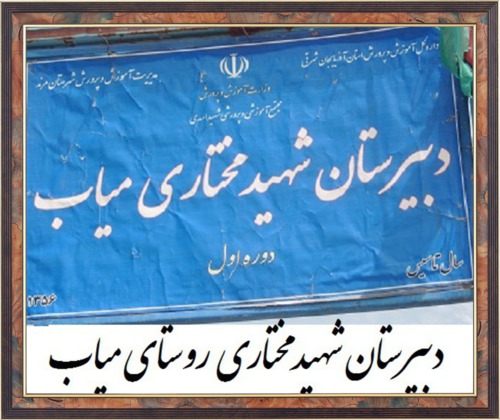 اداره کل آموزش و پرورش استان آذربایجان شرقی
مدیریت آموزش و پرورش شهرستان مرند
وزارت آموزش و پرورش
مجتمع آموزشی و پرورشی شهید اسدی
دبیرستان شهید مختاری میاب
دوره اول
سال تاسیس
۱۳۵۶
دبیرستان شهید مختاری روستای میاب